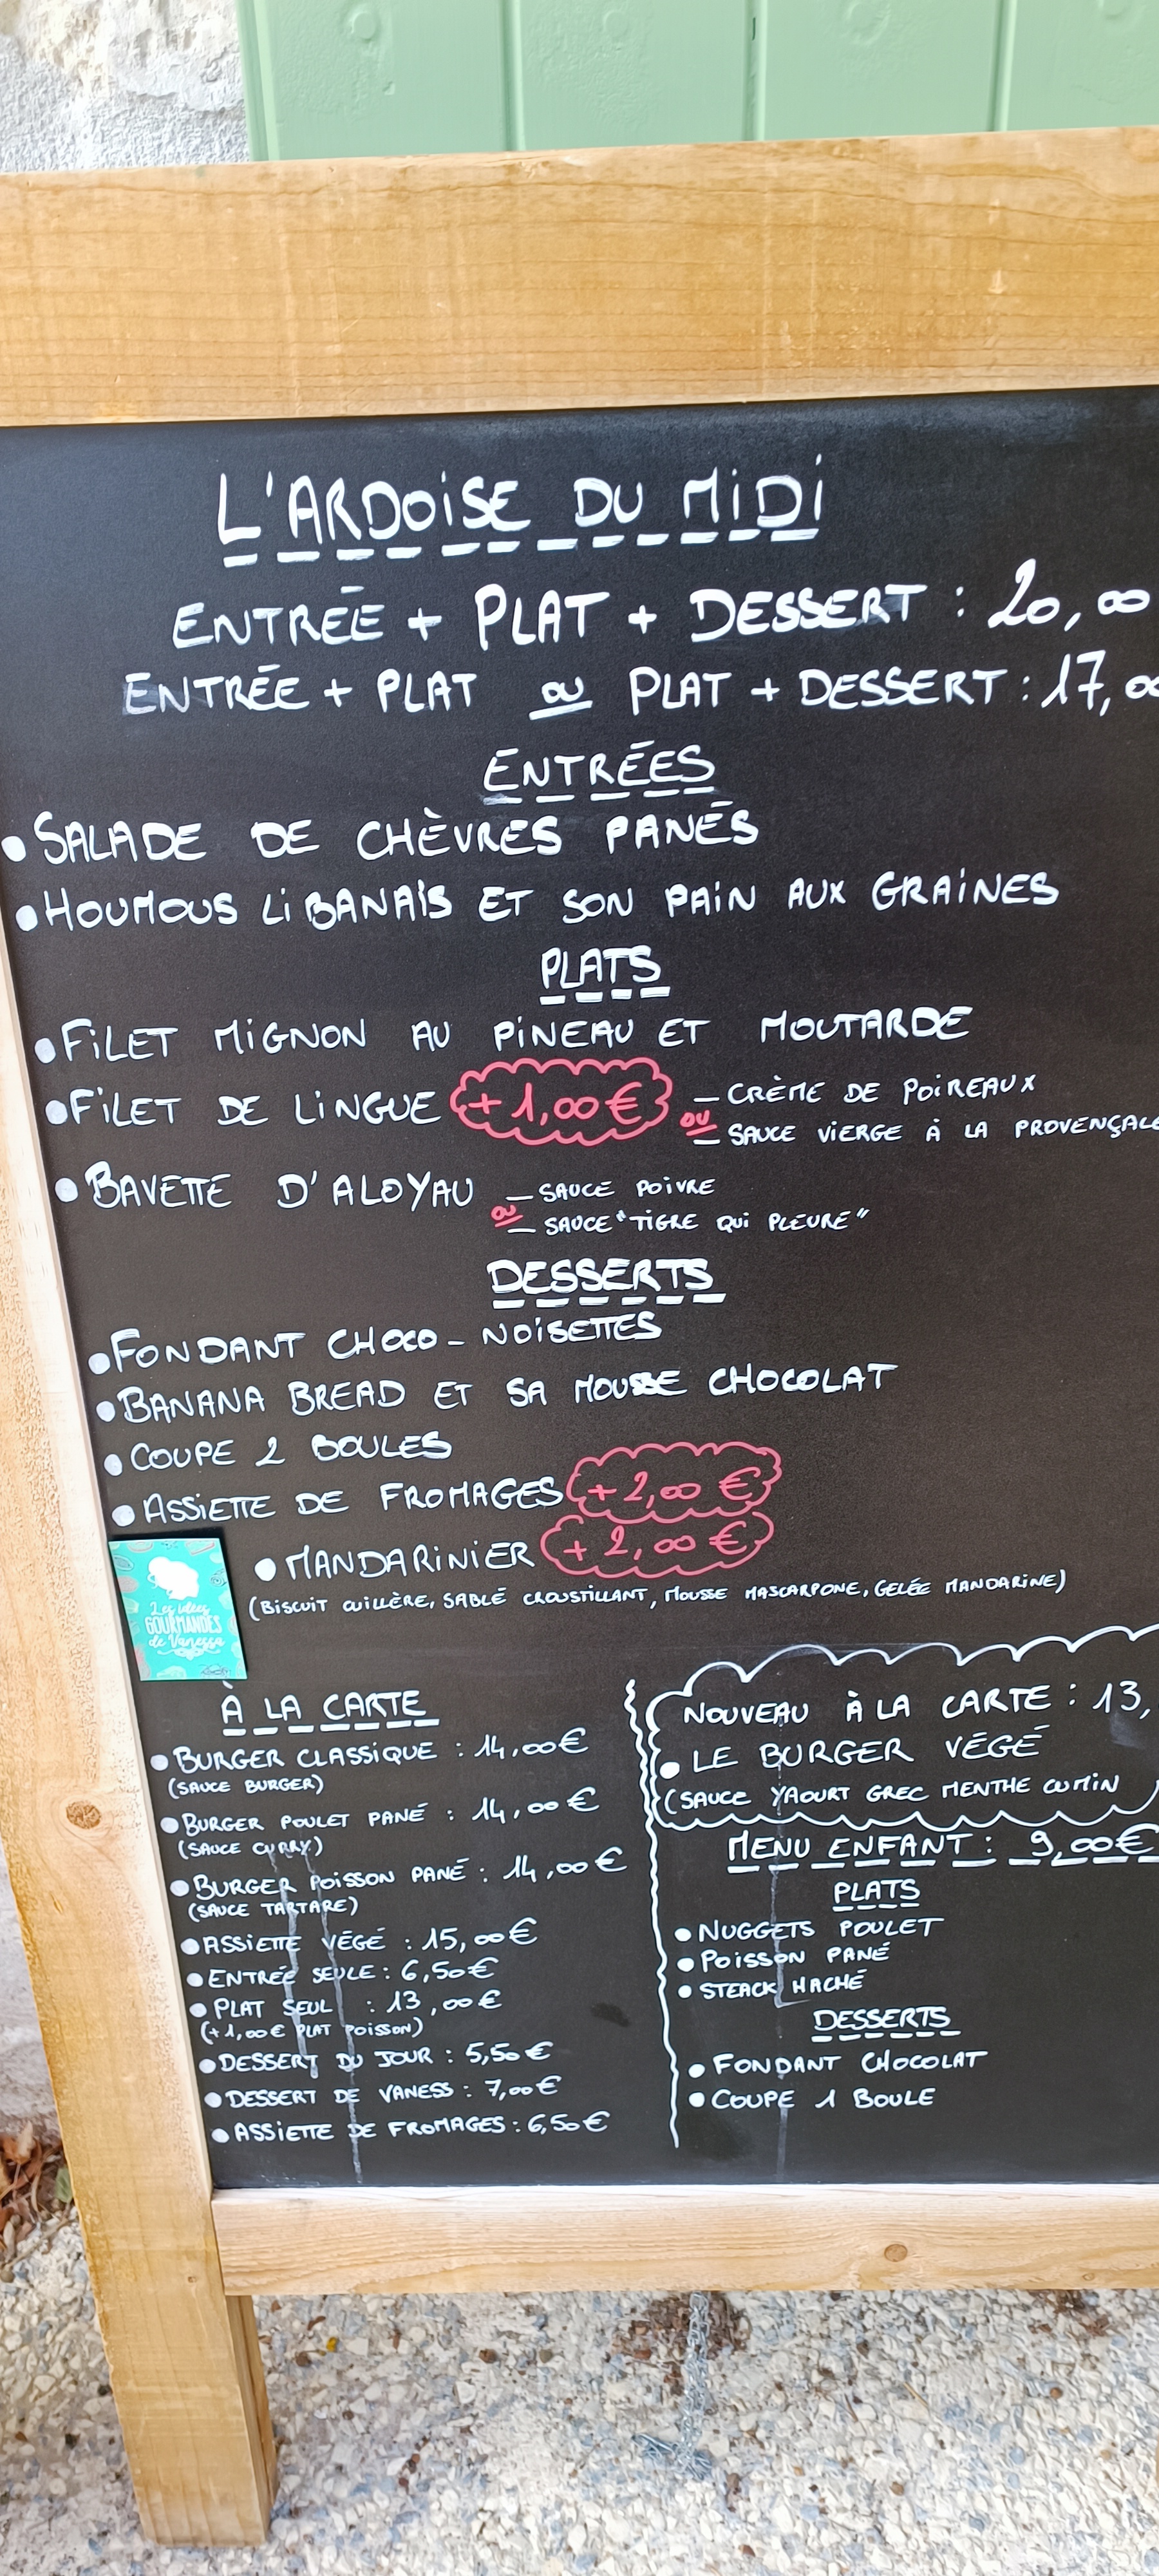 L'ARDOISE DU MIDI
ENTRÉE + PLAT + DESSERT : 20,00
ENTRÉE + PLAT OU PLAT + DESSERT : 17,00
ENTRÉES
• SALADE DE CHÈVRES PANÉS
• HOUMOUS LIBANAIS ET SON PAIN AUX GRAINES
PLATS
• FILET MIGNON AU PINEAU ET MOUTARDE
• FILET DE LINGUE +1,00 € – CRÈME DE POIREAUX
OU
– SAUCE VIERGE À LA PROVENÇALE
• BAVETTE D'ALOYAU – SAUCE POIVRE
OU
– SAUCE "TIGRE QUI PLEURE"
DESSERTS
• FONDANT CHOCO - NOISETTES
• BANANA BREAD ET SA MOUSSE CHOCOLAT
• COUPE 2 BOULES
• ASSIETTE DE FROMAGES + 2,00 €
• MANDARINIER + 2,00 €
(BISCUIT CUILLÈRE, SABLÉ CROUSTILLANT, MOUSSE MASCARPONE, GELÉE MANDARINE)
Les idées
GOURMANDES
de Vanessa
À LA CARTE
• BURGER CLASSIQUE : 14,00 €
(SAUCE BURGER)
• BURGER POULET PANÉ : 14,00 €
(SAUCE CURRY)
• BURGER POISSON PANÉ : 14,00 €
(SAUCE TARTARE)
• ASSIETTE VÉGÉ : 15,00 €
• ENTRÉE SEULE : 6,50 €
• PLAT SEUL : 13,00 €
(+ 1,00 € PLAT POISSON)
• DESSERT DU JOUR : 5,50 €
• DESSERT DE VANESS : 7,00 €
• ASSIETTE DE FROMAGES : 6,50 €
NOUVEAU À LA CARTE : 13,
• LE BURGER VÉGÉ
(SAUCE YAOURT GREC MENTHE CUMIN
MENU ENFANT : 9,00 €
PLATS
• NUGGETS POULET
• POISSON PANÉ
• STEACK HACHÉ
DESSERTS
• FONDANT CHOCOLAT
• COUPE 1 BOULE